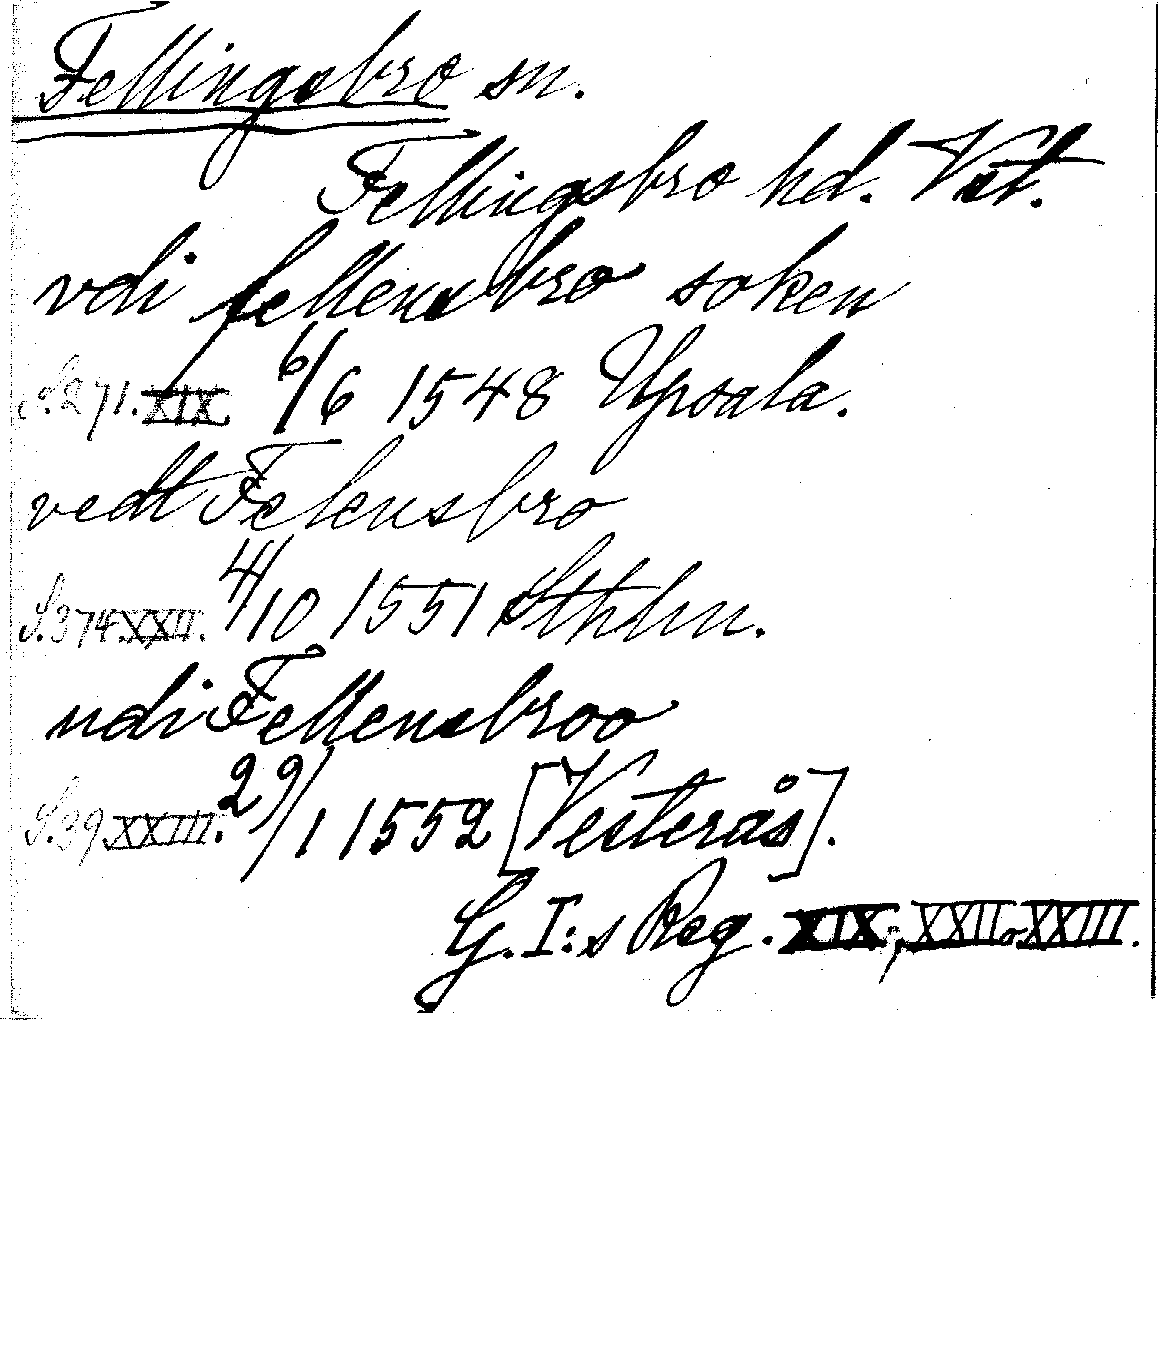 Fellingsbro sn.
Fellingsbro hd. Vstl.
vdi fellensbro soken
S.271.XIX. 6/6 1548 Upsala.
vedt Felensbro
S.374.XXII. 4/10 1551 Sthlm.
udi Fellensbroo
S.39.XXIII. 29/1 1552 [Vesterås].
G.I:s Reg. XIX, XXII o XXIII.